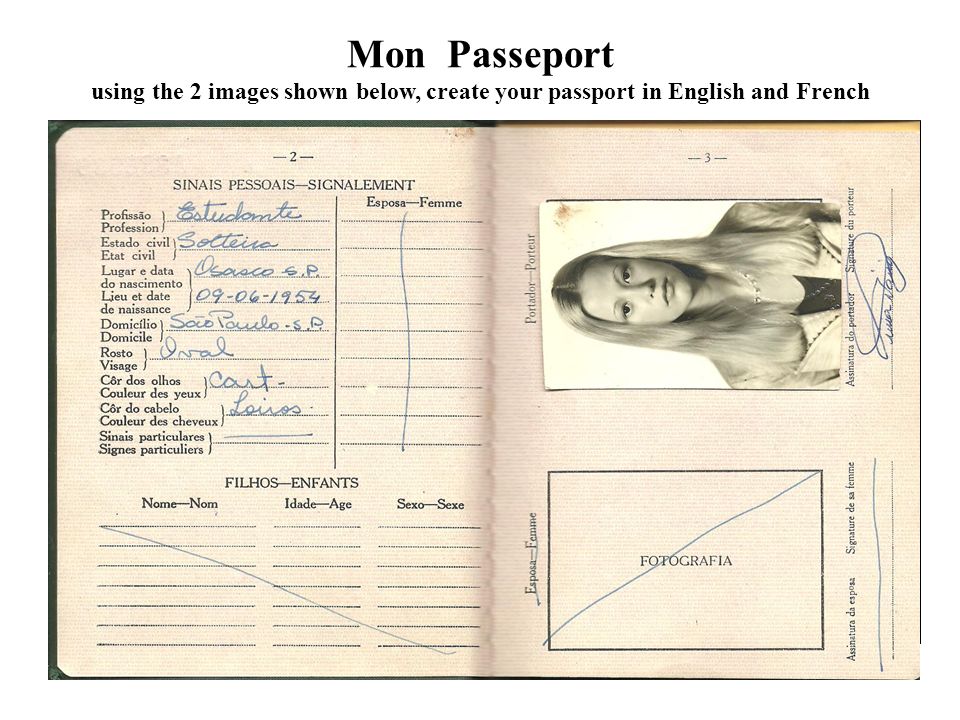 Mon Passeport
using the 2 images shown below, create your passport in English and French
— 2 —
SINAIS PESSOAIS—SIGNALEMENT
Esposa—Femme
Profissão
Profession
Estudante
Estado civil
Etat civil
Solteira
Lugar e data
do nascimento
Lieu et date
de naissance
Osasco S.P.
09-06-1954
Domicílio
Domicile
São Paulo - S.P
Rosto
Visage
Oval
Côr dos olhos
Couleur des yeux
Cast-
Côr do cabelo
Couleur des cheveux
Loiros
Sinais particulares
Signes particuliers
FILHOS—ENFANTS
Nome—Nom Idade—Age Sexo—Sexe
— 3 —
Portador—Porteur
Assinatura do portador Signature du porteur
Esposa—Femme
FOTOGRAFIA
Assinatura da esposa Signature de sa femme